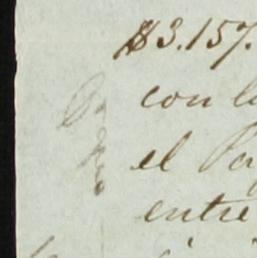 $3.157.
con l
el Pa
entre